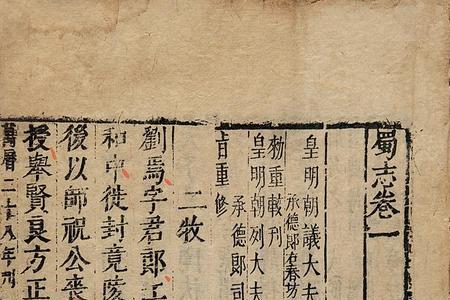 蜀志卷一
皇明朝議大夫
承德郎右春坊
勑重較刊
皇明朝列大夫
承德郎司
旨重修
二牧
劉焉字君郎江
和中徙封竟陵
後以師祝公喪
授舉賢良方正
萬曆二十八年刊